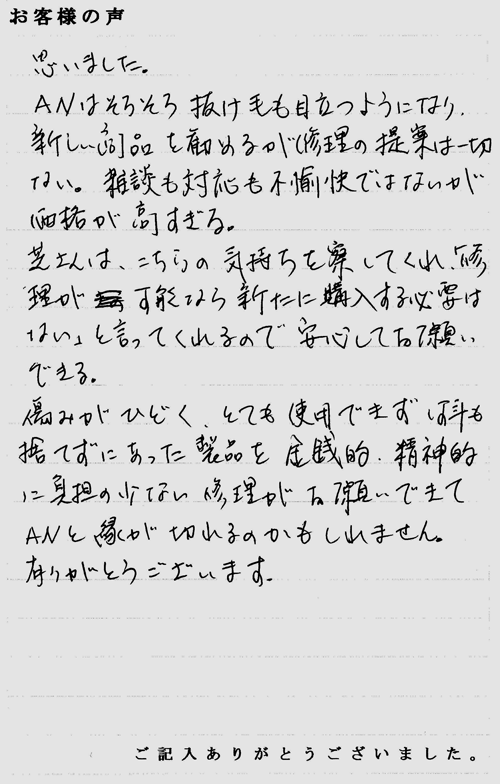 お客様の声
思いました。
ANはそろそろ抜け毛も目立つようになり、
新しい商品を勧めるが修理の提案は一切
ない。雑談も対応も不愉快ではないが
価格が高すぎる。
芝さんは、こちらの気持ちを察してくれ、「修
理が可能なら新たに購入する必要は
ない」と言ってくれるので安心してお願い
できる。
傷みがひどく、とても使用できず何年も
捨てずにあった製品を金銭的、精神的
に負担の少ない修理がお願いできて
ANと縁が切れるのかもしれません。
ありがとうございます。
ご記入ありがとうございました。